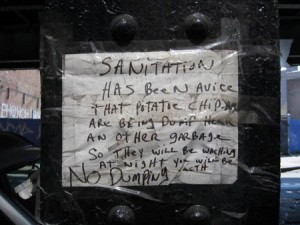 SANITATION
HAS BEEN AVICE
THAT POTATOE CHIPS
ARE BEING DUMP HEAR
AN OTHER GARBAGE
SO THEY WILL BE WACHING
AT NIGHT YOU WILL BE
NO DUMPING